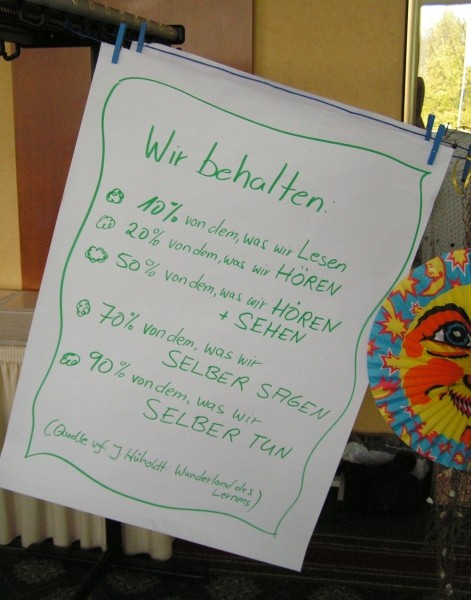 Wir behalten:
10% von dem, was wir Lesen
20% von dem, was wir HÖREN
50% von dem, was wir HÖREN
+ SEHEN
70% von dem, was wir
SELBER SAGEN
90% von dem, was wir
SELBER TUN
(Quelle J. Hüholdt. Wunderland des
Lernens)